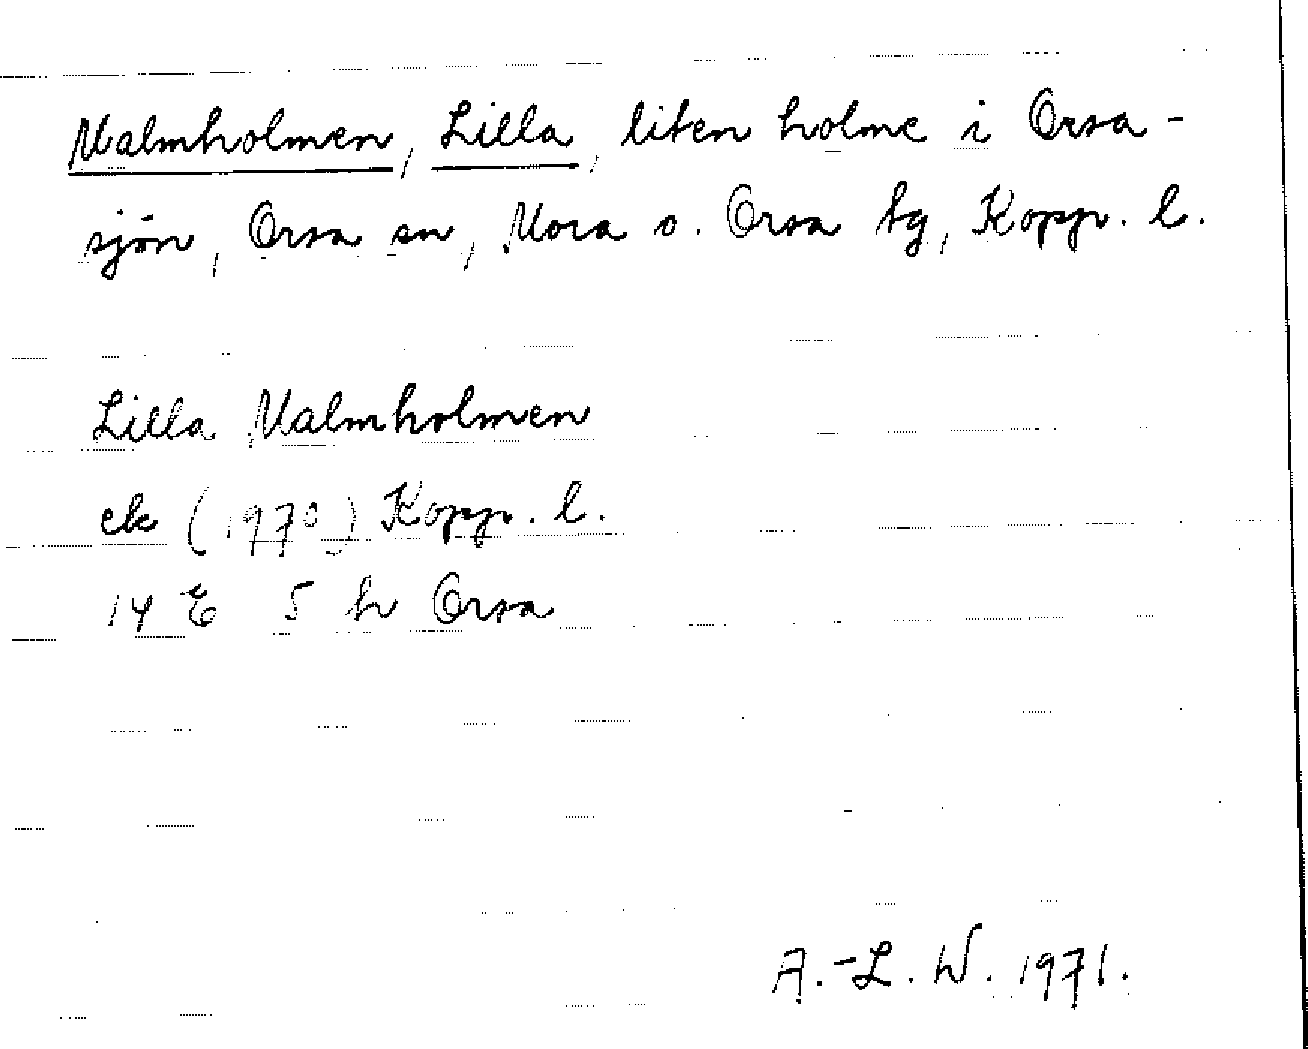 Malmholmen, Lilla, liten holme i Orsa-
sjön, Orsa sn, Mora o. Orsa tg, Kopp. l.
Lilla Malmholmen
ek (1970) Kopp. l.
14 E 5 h Orsa
A.-L. W. 1971.